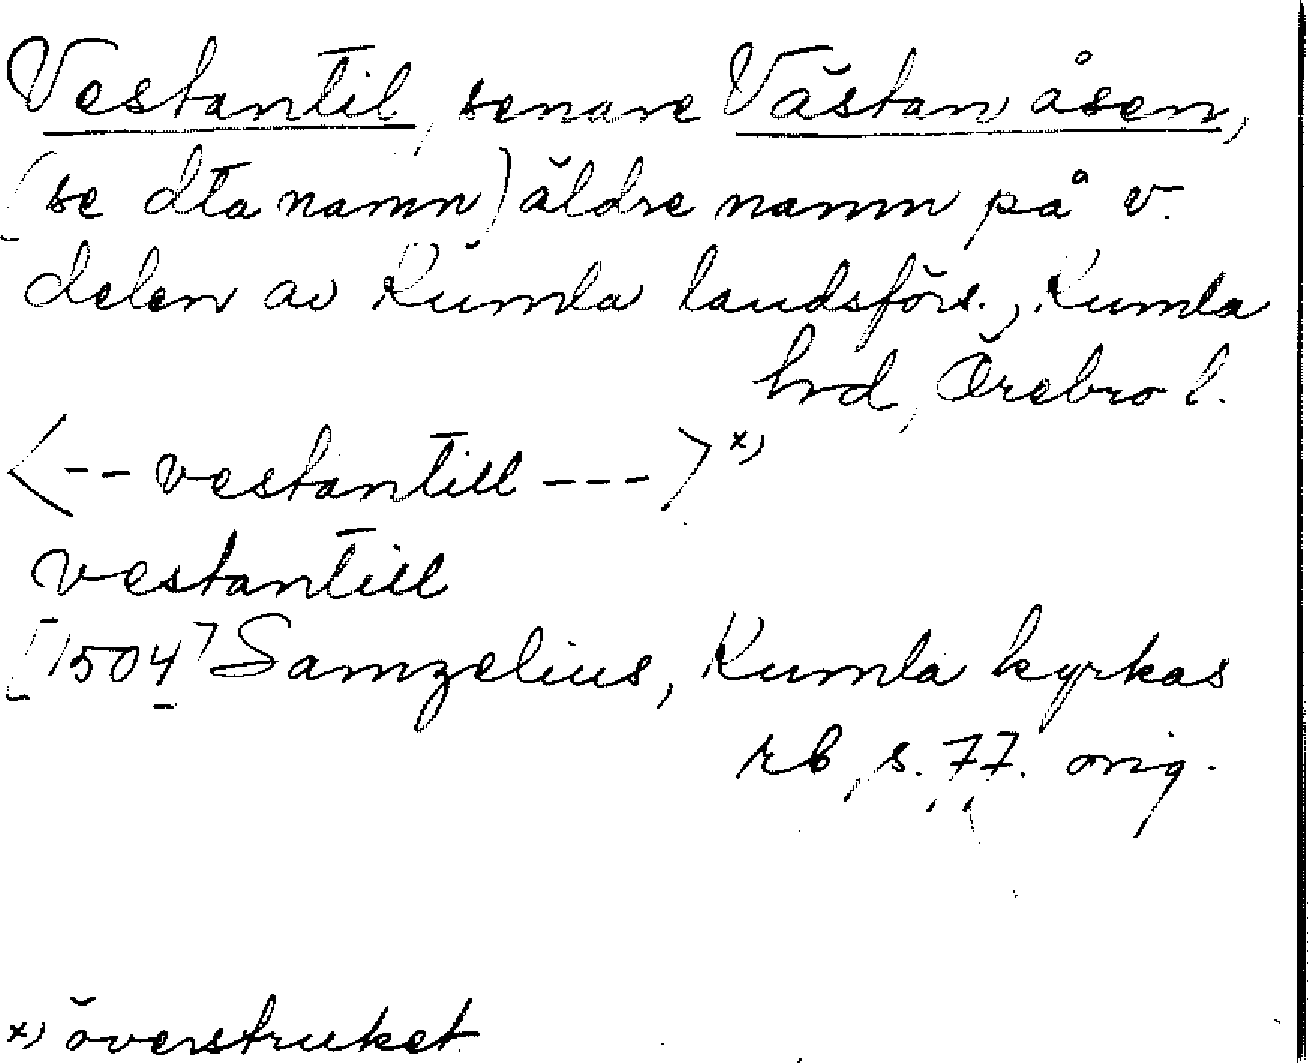 Vestantil, senare Västanåsen,
(se dta namn) äldre namn på v.
delen av Kumla landsförs., Kumla
hrd, Örebro l.
<-- vestantill --->x)
vestantill
[1504] Samzelius, Kumla kyrkas
rb, s. 77. orig.
x) överstruket